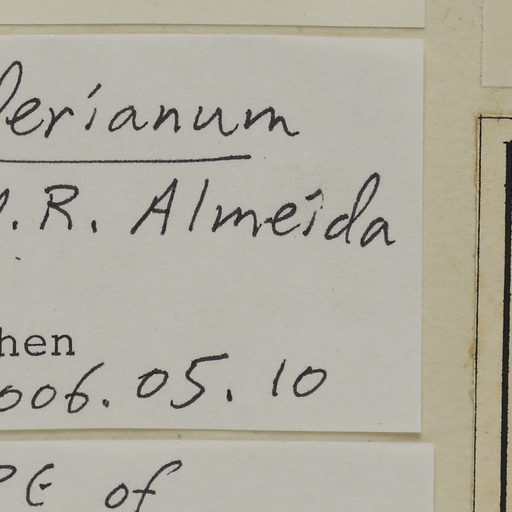 lerianum
.R. Almeida
hen
006.05.10
PE of